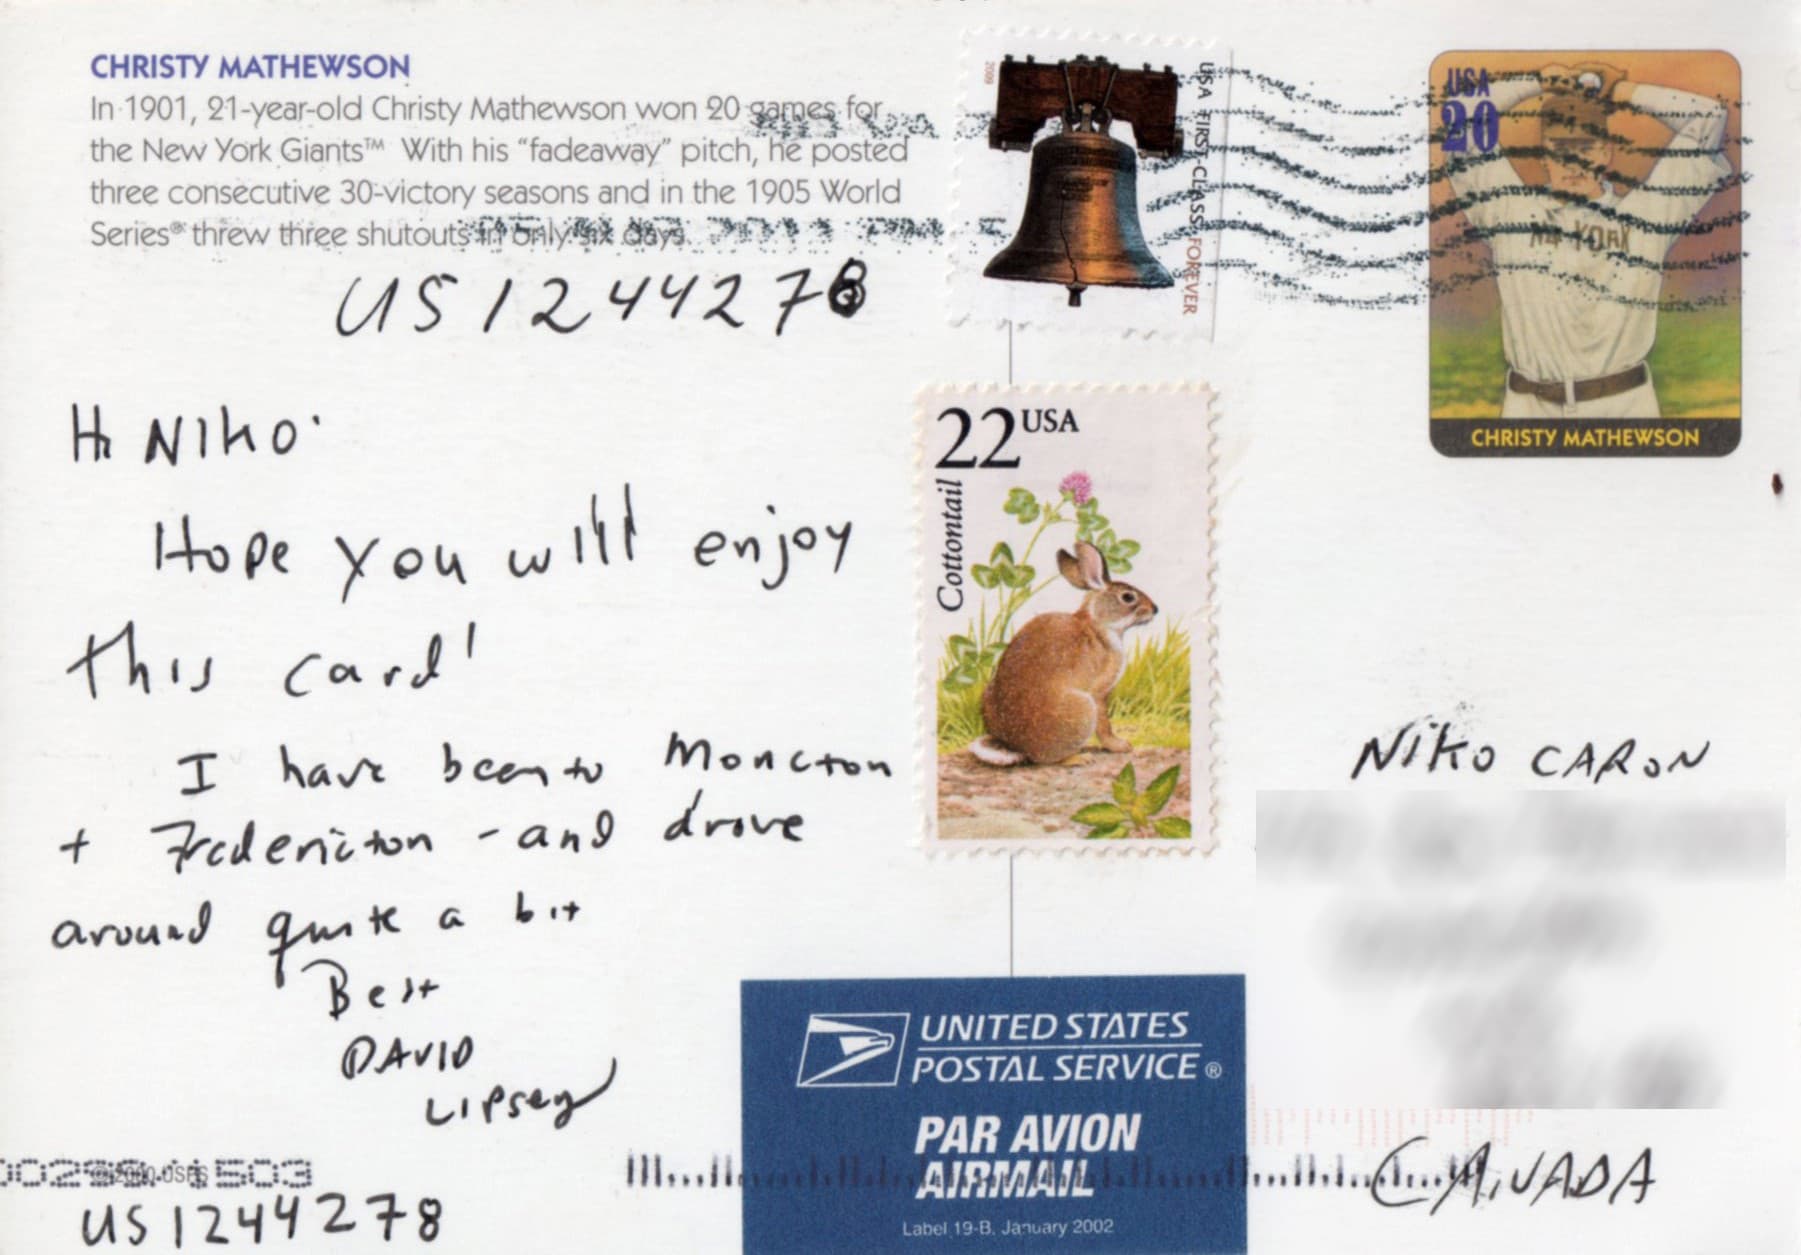 CHRISTY MATHEWSON
In 1901, 21-year-old Christy Mathewson won 20 games for
the New York Giants™ With his “fadeaway” pitch, he posted
three consecutive 30-victory seasons and in the 1905 World
Series® threw three shutouts in only six days.
US 1244278
Hi NIKO
Hope you will enjoy
this card!
I have been to Moncton
+ Fredericton - and drove
around quite a bit
Best
DAVID
Lipsey
©2000 USPS
US 1244278
2009
USA FIRST-CLASS FOREVER
22 USA
Cottontail
USA
20
NEW YORK
CHRISTY MATHEWSON
NIKO CARON
CANADA
UNITED STATES
POSTAL SERVICE®
PAR AVION
AIRMAIL
Label 19-B, January 2002